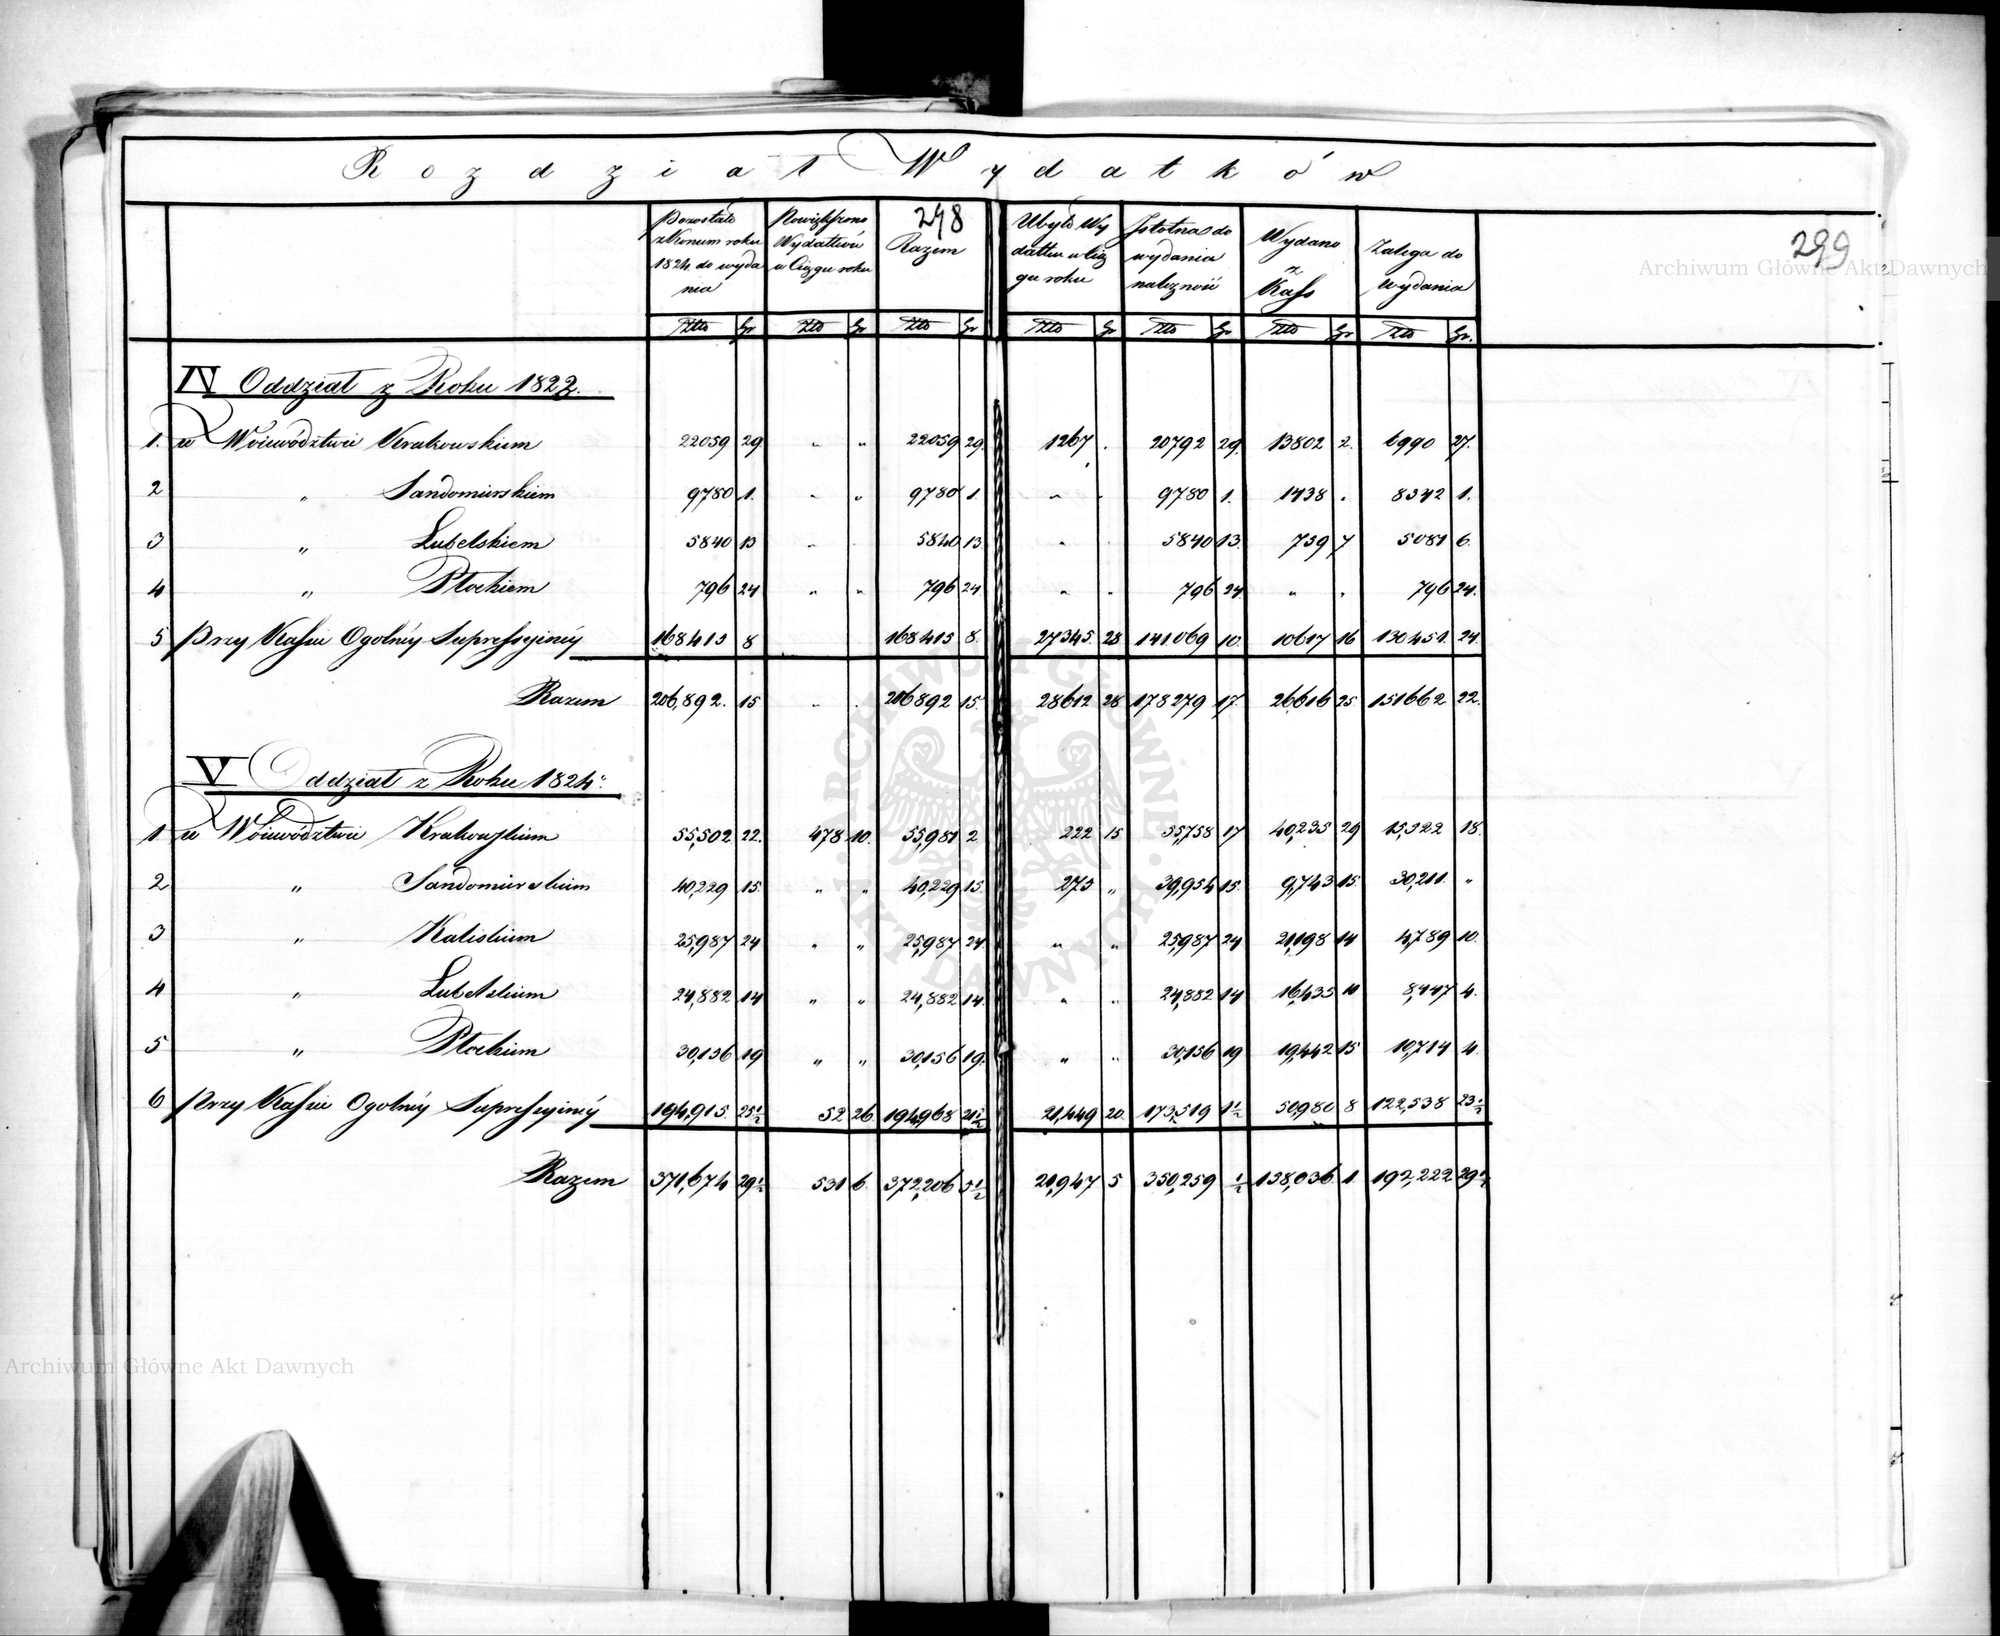 Rozdział Wydatków
298
299
Pozostało
z Koncem roku
1824 do wyda
nia
Powiększono
Wydatków
w Ciągu roku
Razem
Ubyło Wy
datku w Cią
gu roku
Istotna do
wydania
należność
Wydano
z
Kass
Zalega do
wydania
Złto Gr Złto Gr Złto Gr Złto Gr Złto Gr Złto Gr Złto Gr.
IV Oddział z Roku 1822.
1. w Woiewództwie Krakowskiem 22059 29 " " 22059 29. 1267 . 20792 29. 13802 2. 6990 27.
2 " Sandomirskiem 9780 1. " " 9780 1 " " 9780 1. 1438 " 8342 1.
3 " Lubelskiem 5840 13 " " 5840 13 " " 5840 13. 759 7 5081 6.
4 " Płockiem 796 24 " " 796 24 " " 796 24. " " 796 24.
5 Przy Kassie Ogolnéy Supressyinéy 168415 8 168415 8. 27345. 28 141069 10. 10617 16 130451. 24
Razem 206,892. 15 " " 206892 15 28612 28 178279 17. 26616 25. 151662 22.
V Oddział z Roku 1824.
1 w Woiewództwie Krakowskiem 55,502 22. 478 10. 55,981 2 222 15 55,758 17 40,235 29 15,522 18.
2 " Sandomirskiem 40,229 15. " " 40,229 15. 275 " 39,954 15. 9,743 15. 30,211. "
3 " Kaliskiem 25,987 24 " " 25,987 24. " " 25,987 24 21,198 14 4,789 10.
4 " Lubelskiem 24,882 14 " " 24,882 14. " " 24,882 14 16,435 10 8,447 4.
5 " Płockiem 30,156 19 " " 30,156 19. " " 30,156 19 19,442 15 10,714 4.
6 Przy Kassie Ogolnéy Supressyinéy 194,915. 25½ 52 26 194,968 21½ 21,449 20 173,519 1½ 50,980 8 122,538 23½
Razem 371,674 29½ 531 6 372,206 5½ 21,947 5 350,259 ½ 158,036 1 192,222 29½
Archiwum Główne Akt Dawnych
ARCHIWUM GŁÓWNE AKT DAWNYCH
Archiwum Główne Akt Dawnych